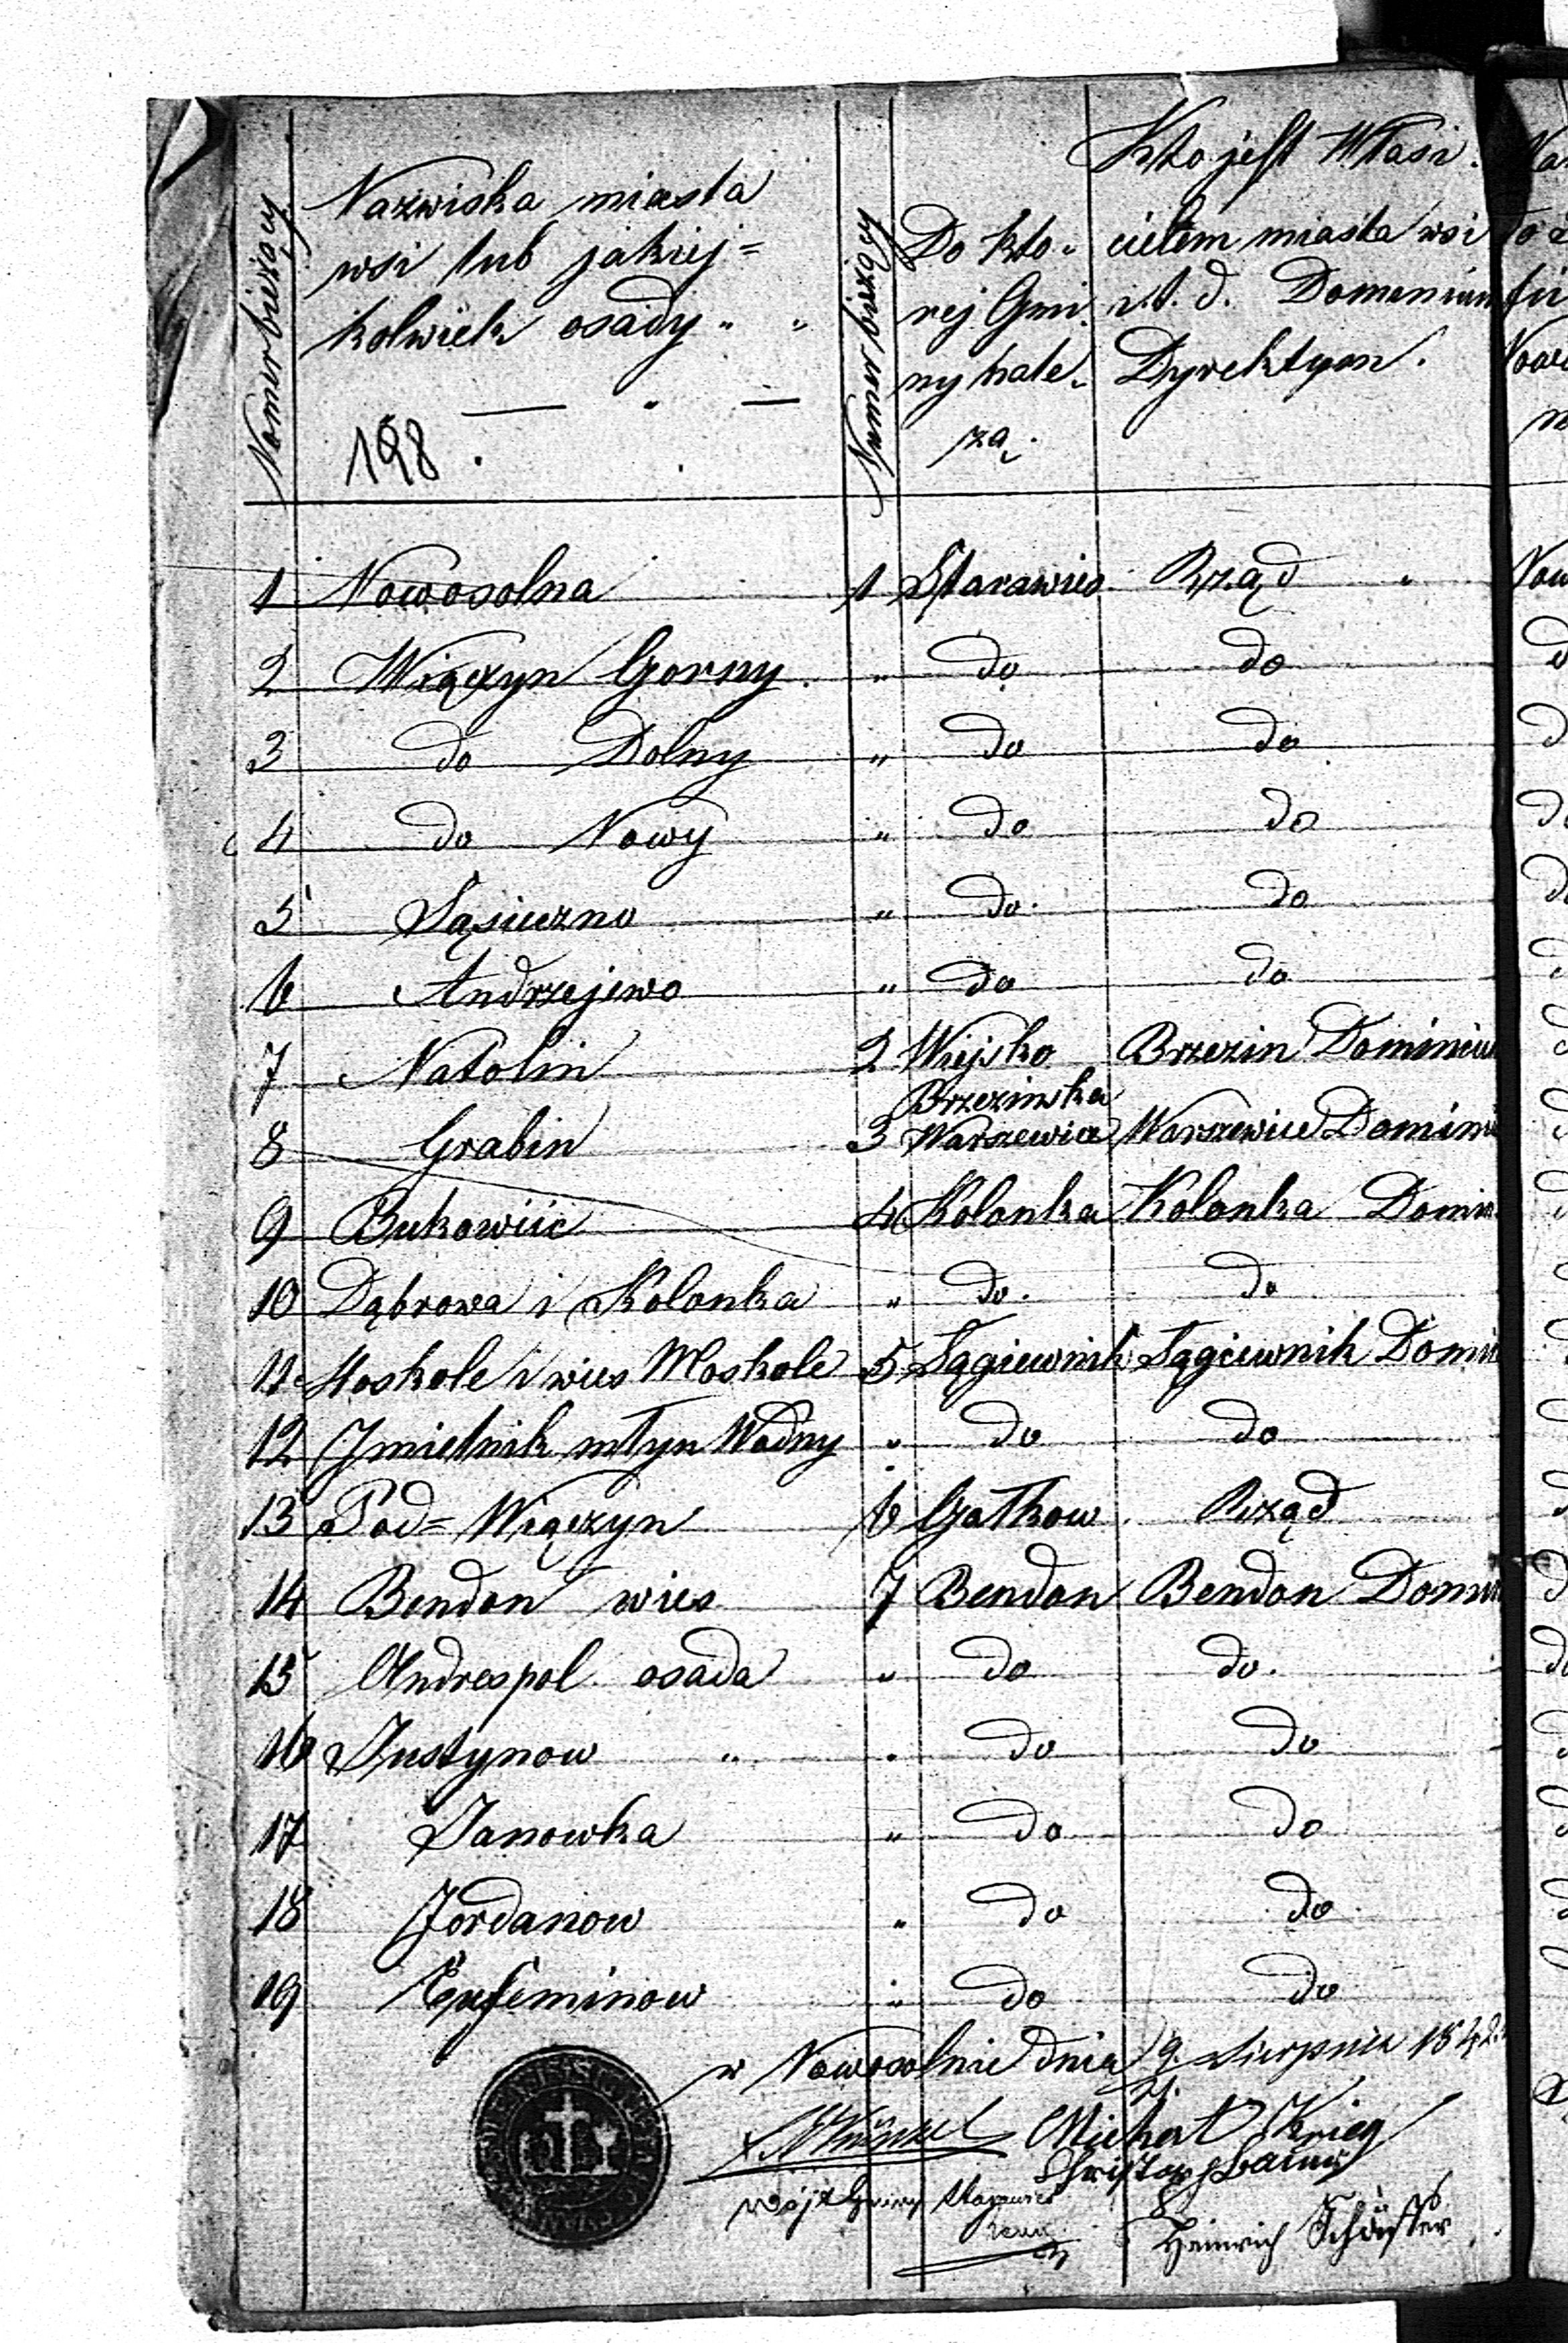 Numer bieżący
Nazwiska miasta
wsi lub jakiej=
kolwiek osady " "
198.
Numer gminy
Do któ-
rej Gmi-
ny nale-
żą.
Kto jest Właści-
cielem miasta wsi
i t. d. Domenium
Dyrektyon.
1 Nowosolna 1 Starawies Rząd
2 Wiączyn Gorny " do do
3 do Dolny " do do
4 do Nowy " do do
5 Sąsieczno " do do
6 Andrzejewo " do do
7 Natolin 2 Wiejsko Brzezinska Brzezin Dominiu
8 Grabin 3 Warszewice Warszewice Domini
9 Bukowiic 4 Kolonka Kolonka Domin
10 Dąbrowa i Kolonka " do. do
11 Moskole i wies Moskole 5 Łągiewnik Łągiewnik Domi
12 Jmielnik młyn Wodny " do do
13 Pod=Wiączyn 6 Gałkow Rząd
14 Bendon wies 7 Bendon Bendon Domi
15 Andrespol osada " do do.
16 Justynow " " do do
17 Janowka " do do
18 Jordanow " do do
19 Eufeminow " do do
w Nowosolnie dnia 9. Sierpnia 1842
Michael Krieg
Christoph
Wójt Gminy
Heinrich Schäffer